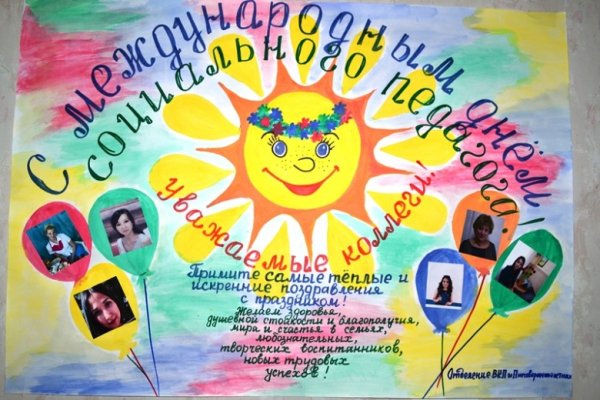 С международным днём
социального педагога!
уважаемые коллеги!
Примите самые тёплые и
искренние поздравления
с праздником!
Желаем здоровья,
душевной стойкости и благополучия,
мира и счастья в семьях,
любознательных,
творческих воспитанников,
новых трудовых
успехов!
Отделение